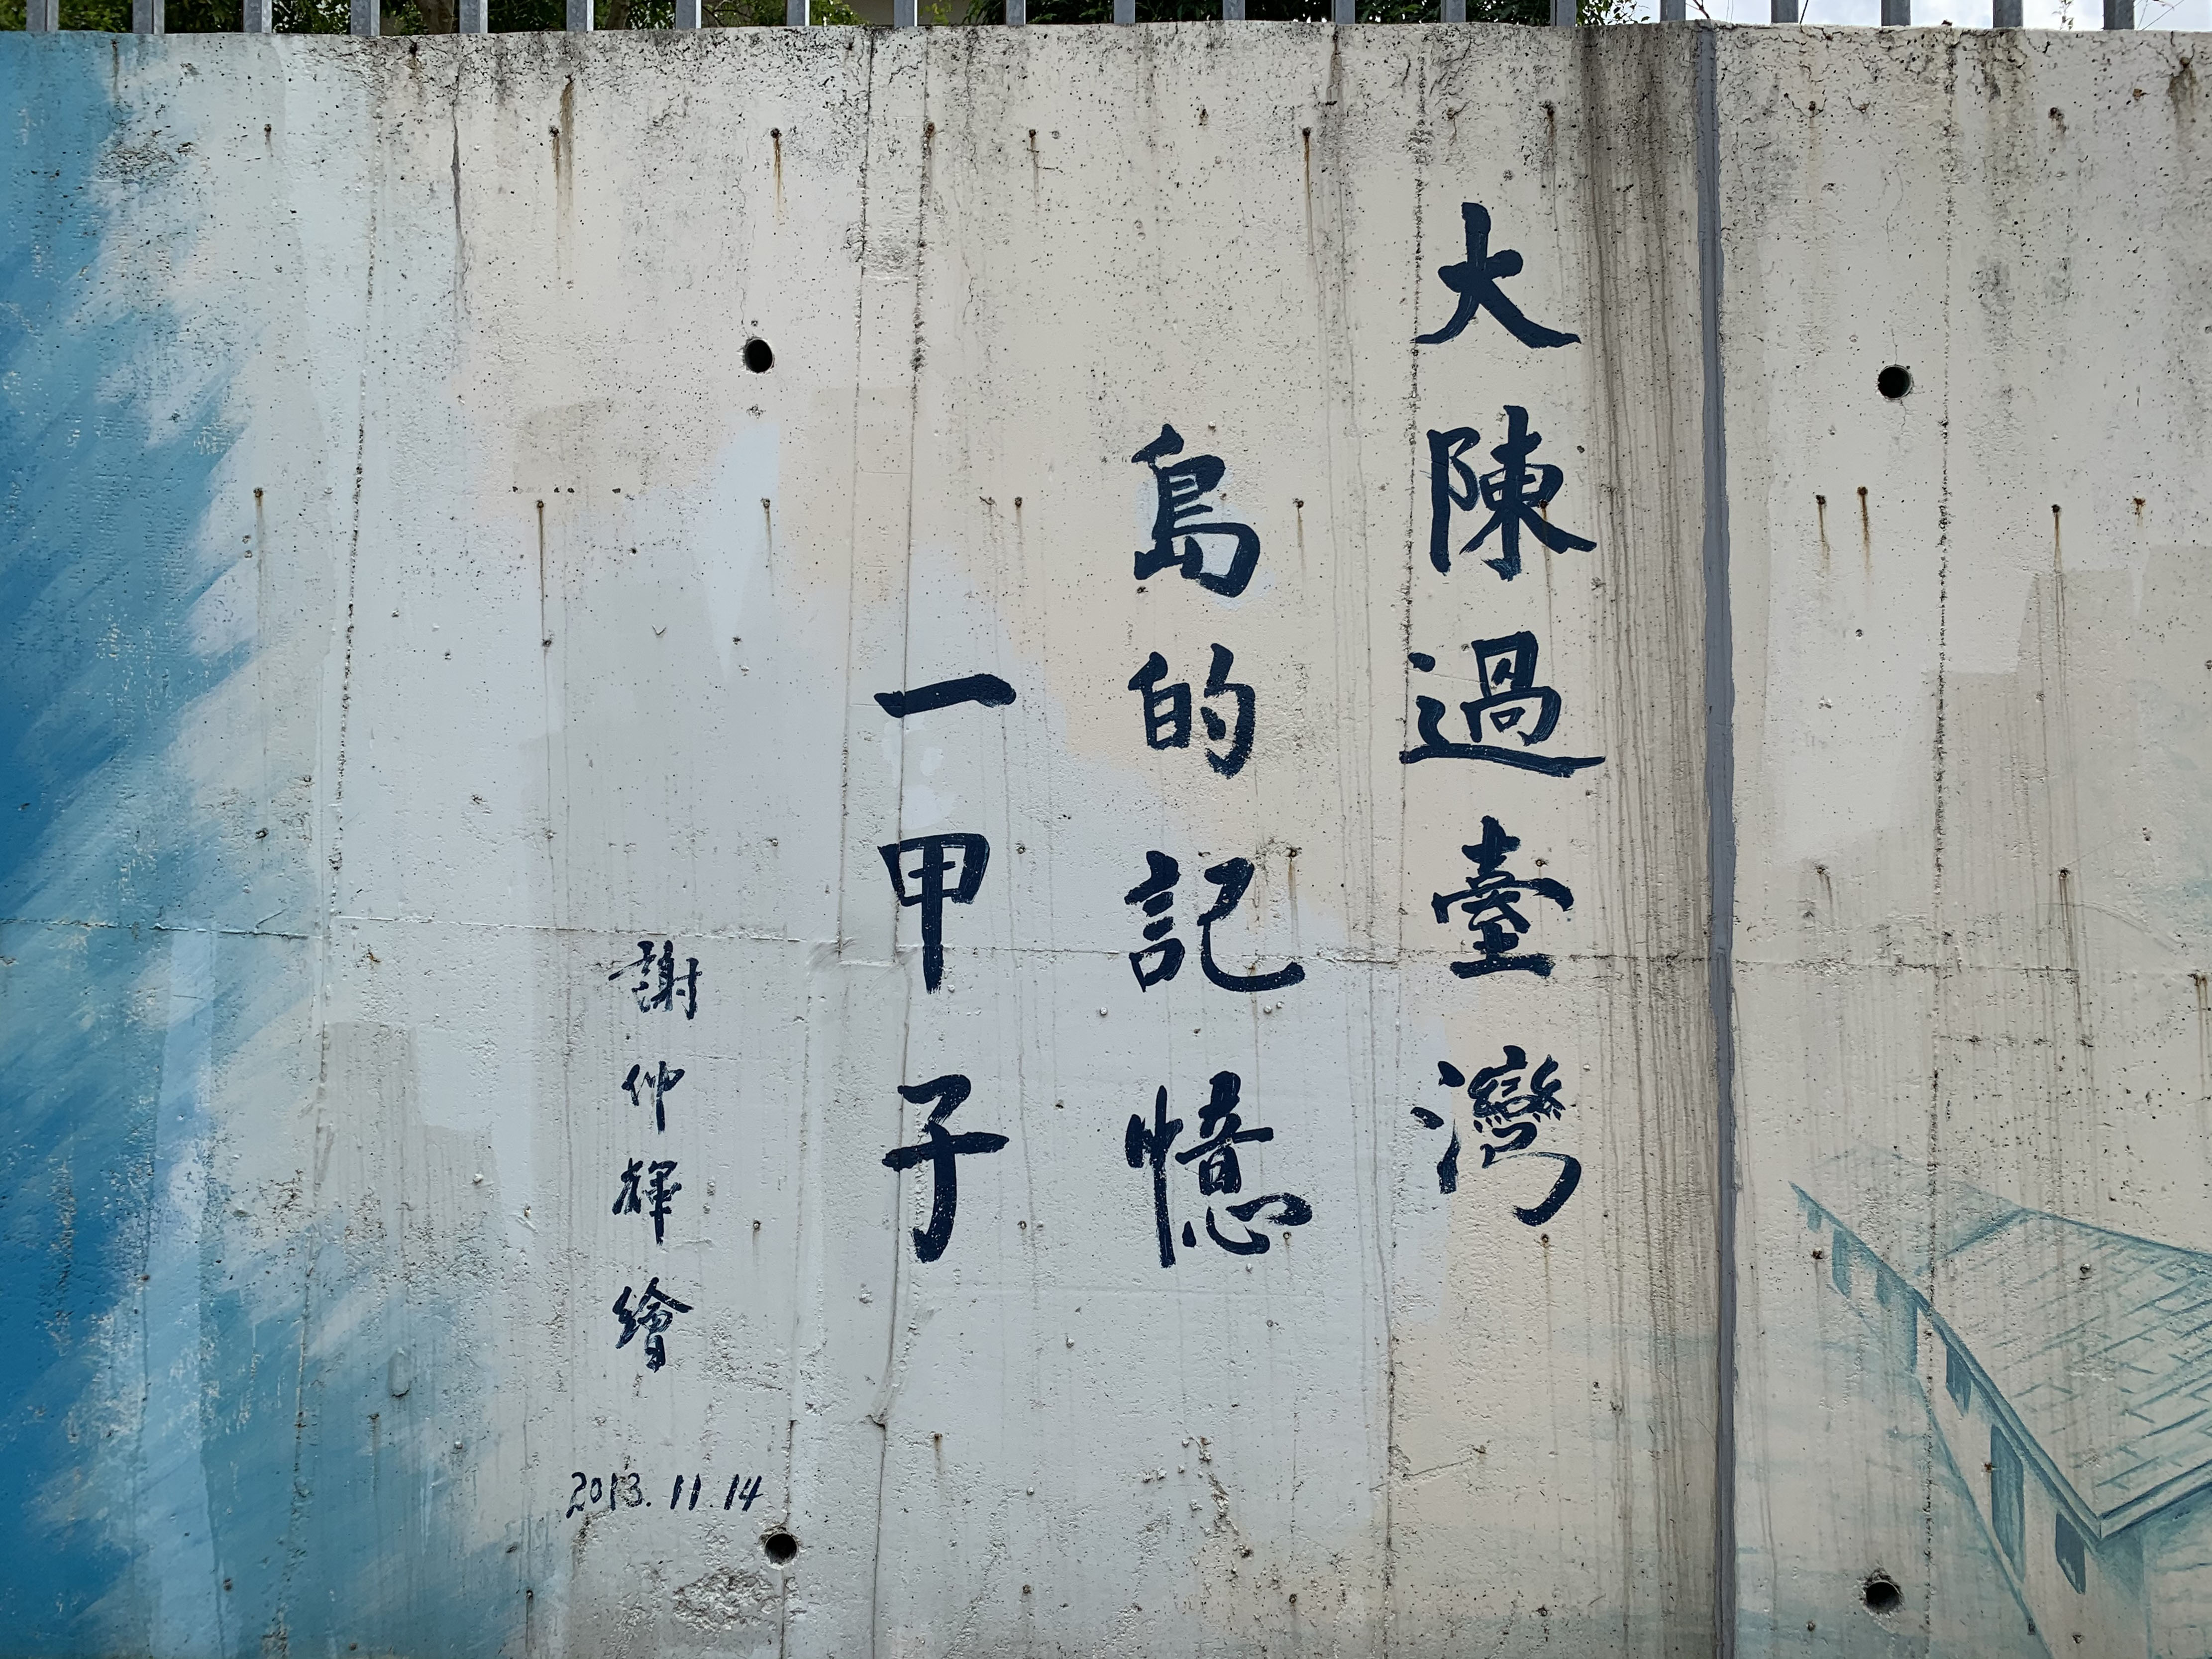 大陳過臺灣
島的記憶
一甲子
謝仲輝繪
2013.11.14